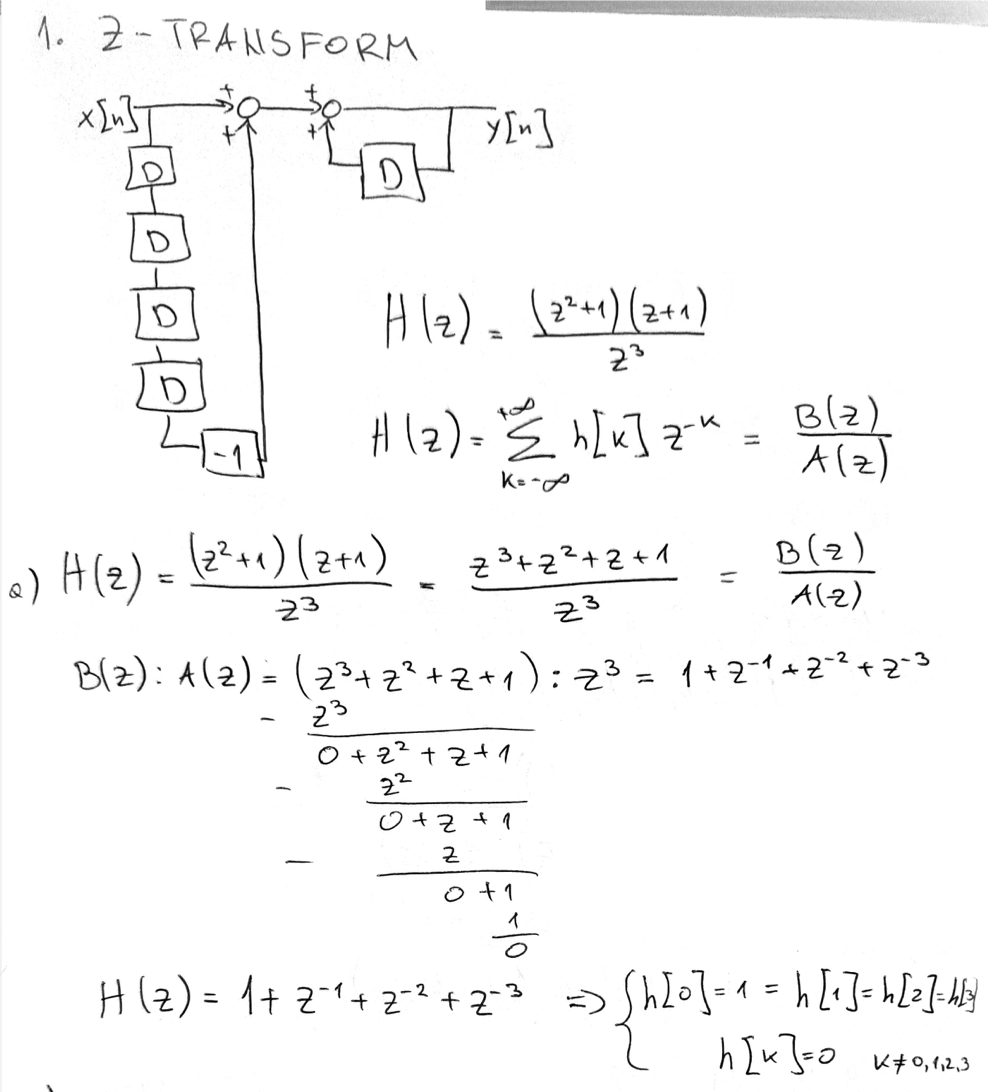 1. Z-TRANSFORM
x[n] + + + + y[n]
D
D
D
D
D
-1
H(z) = (z²+1)(z+1) / z³
H(z) = +∞ Σ k=-∞ h[k] z⁻ᵏ = B(z) / A(z)
a) H(z) = (z²+1)(z+1) / z³ = z³+z²+z+1 / z³ = B(z) / A(z)
B(z) : A(z) = (z³+z²+z+1) : z³ = 1+z⁻¹+z⁻²+z⁻³
- z³
0 + z² + z + 1
- z²
0 + z + 1
- z
0 + 1
1
0
H(z) = 1 + z⁻¹ + z⁻² + z⁻³ ⇒ { h[0] = 1 = h[1] = h[2] = h[3]
h[k] = 0 k≠0,1,2,3